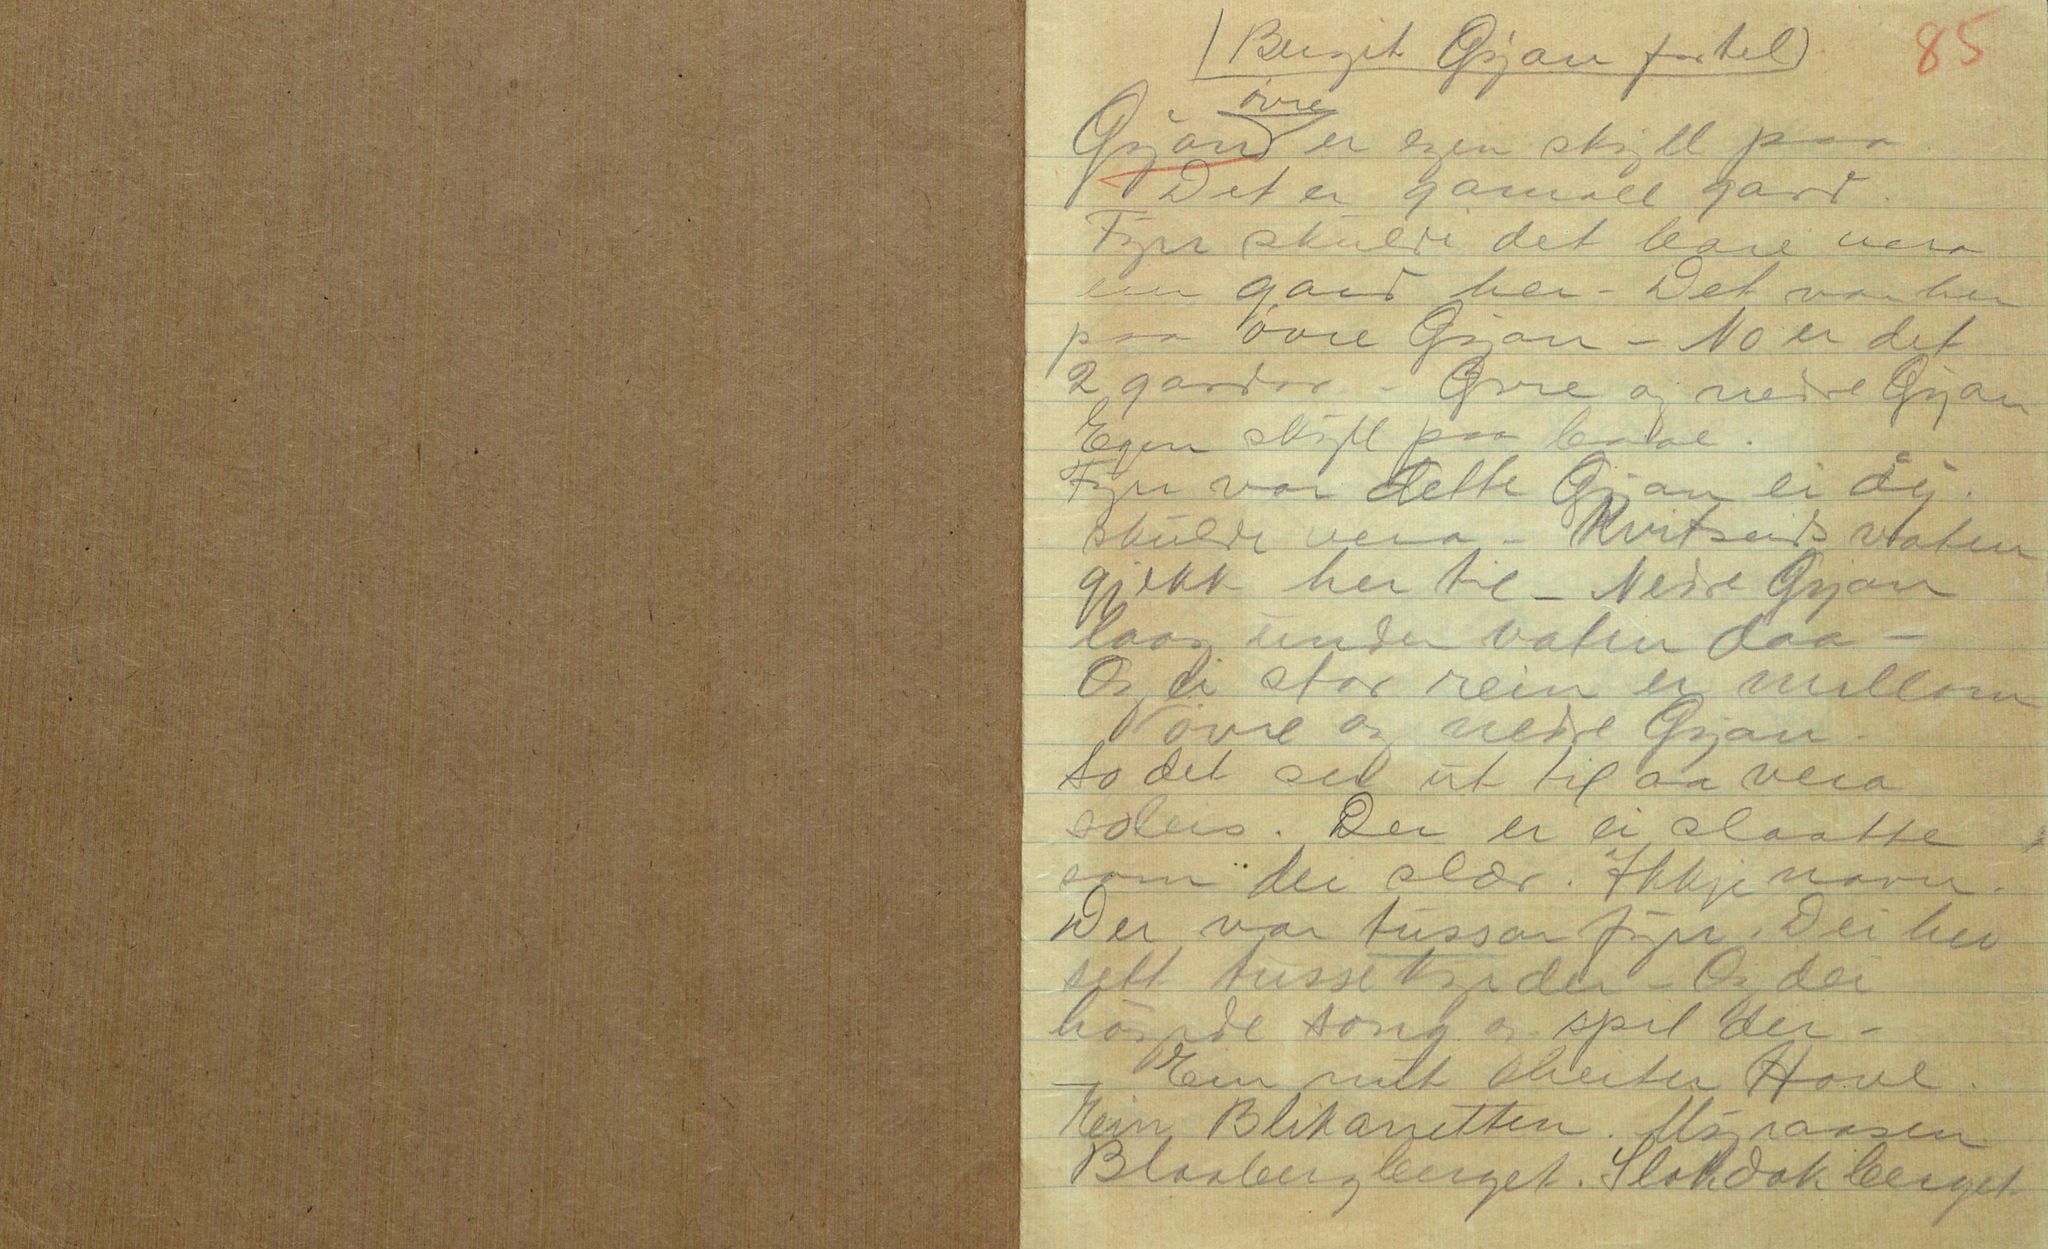 (Bergit Gjøan fortel) 85
øvre
Gjøan er egen skyll paa
Det er gamall gard.
Fyrr skulde det bare vera
ein gard her - Det var her
paa øvre Gjøan - No er det
2 gardar - Øvre og nedre Gjøan
Egen skyll paa baae.
Fyrr var dette Gjøan ei øy.
skulde vera - Kvitseidsvatten
gjekk her til - Nedre Gjøan
laag under vatten daa -
Og ei stor rein er millom
øvre og nedre Gjøan.
So det ser ut til aa vera
soleis. Der er ei slaatte
som dei slær. Ikkje navn.
Der var tussar fyrr. Dei hev
sett tussekyr der - Og dei
høyrde song og spel der -
- Ein nut heiter Hove.
Ein Blikanutten. Myraasen
Blaabergberget. Slokdokberget